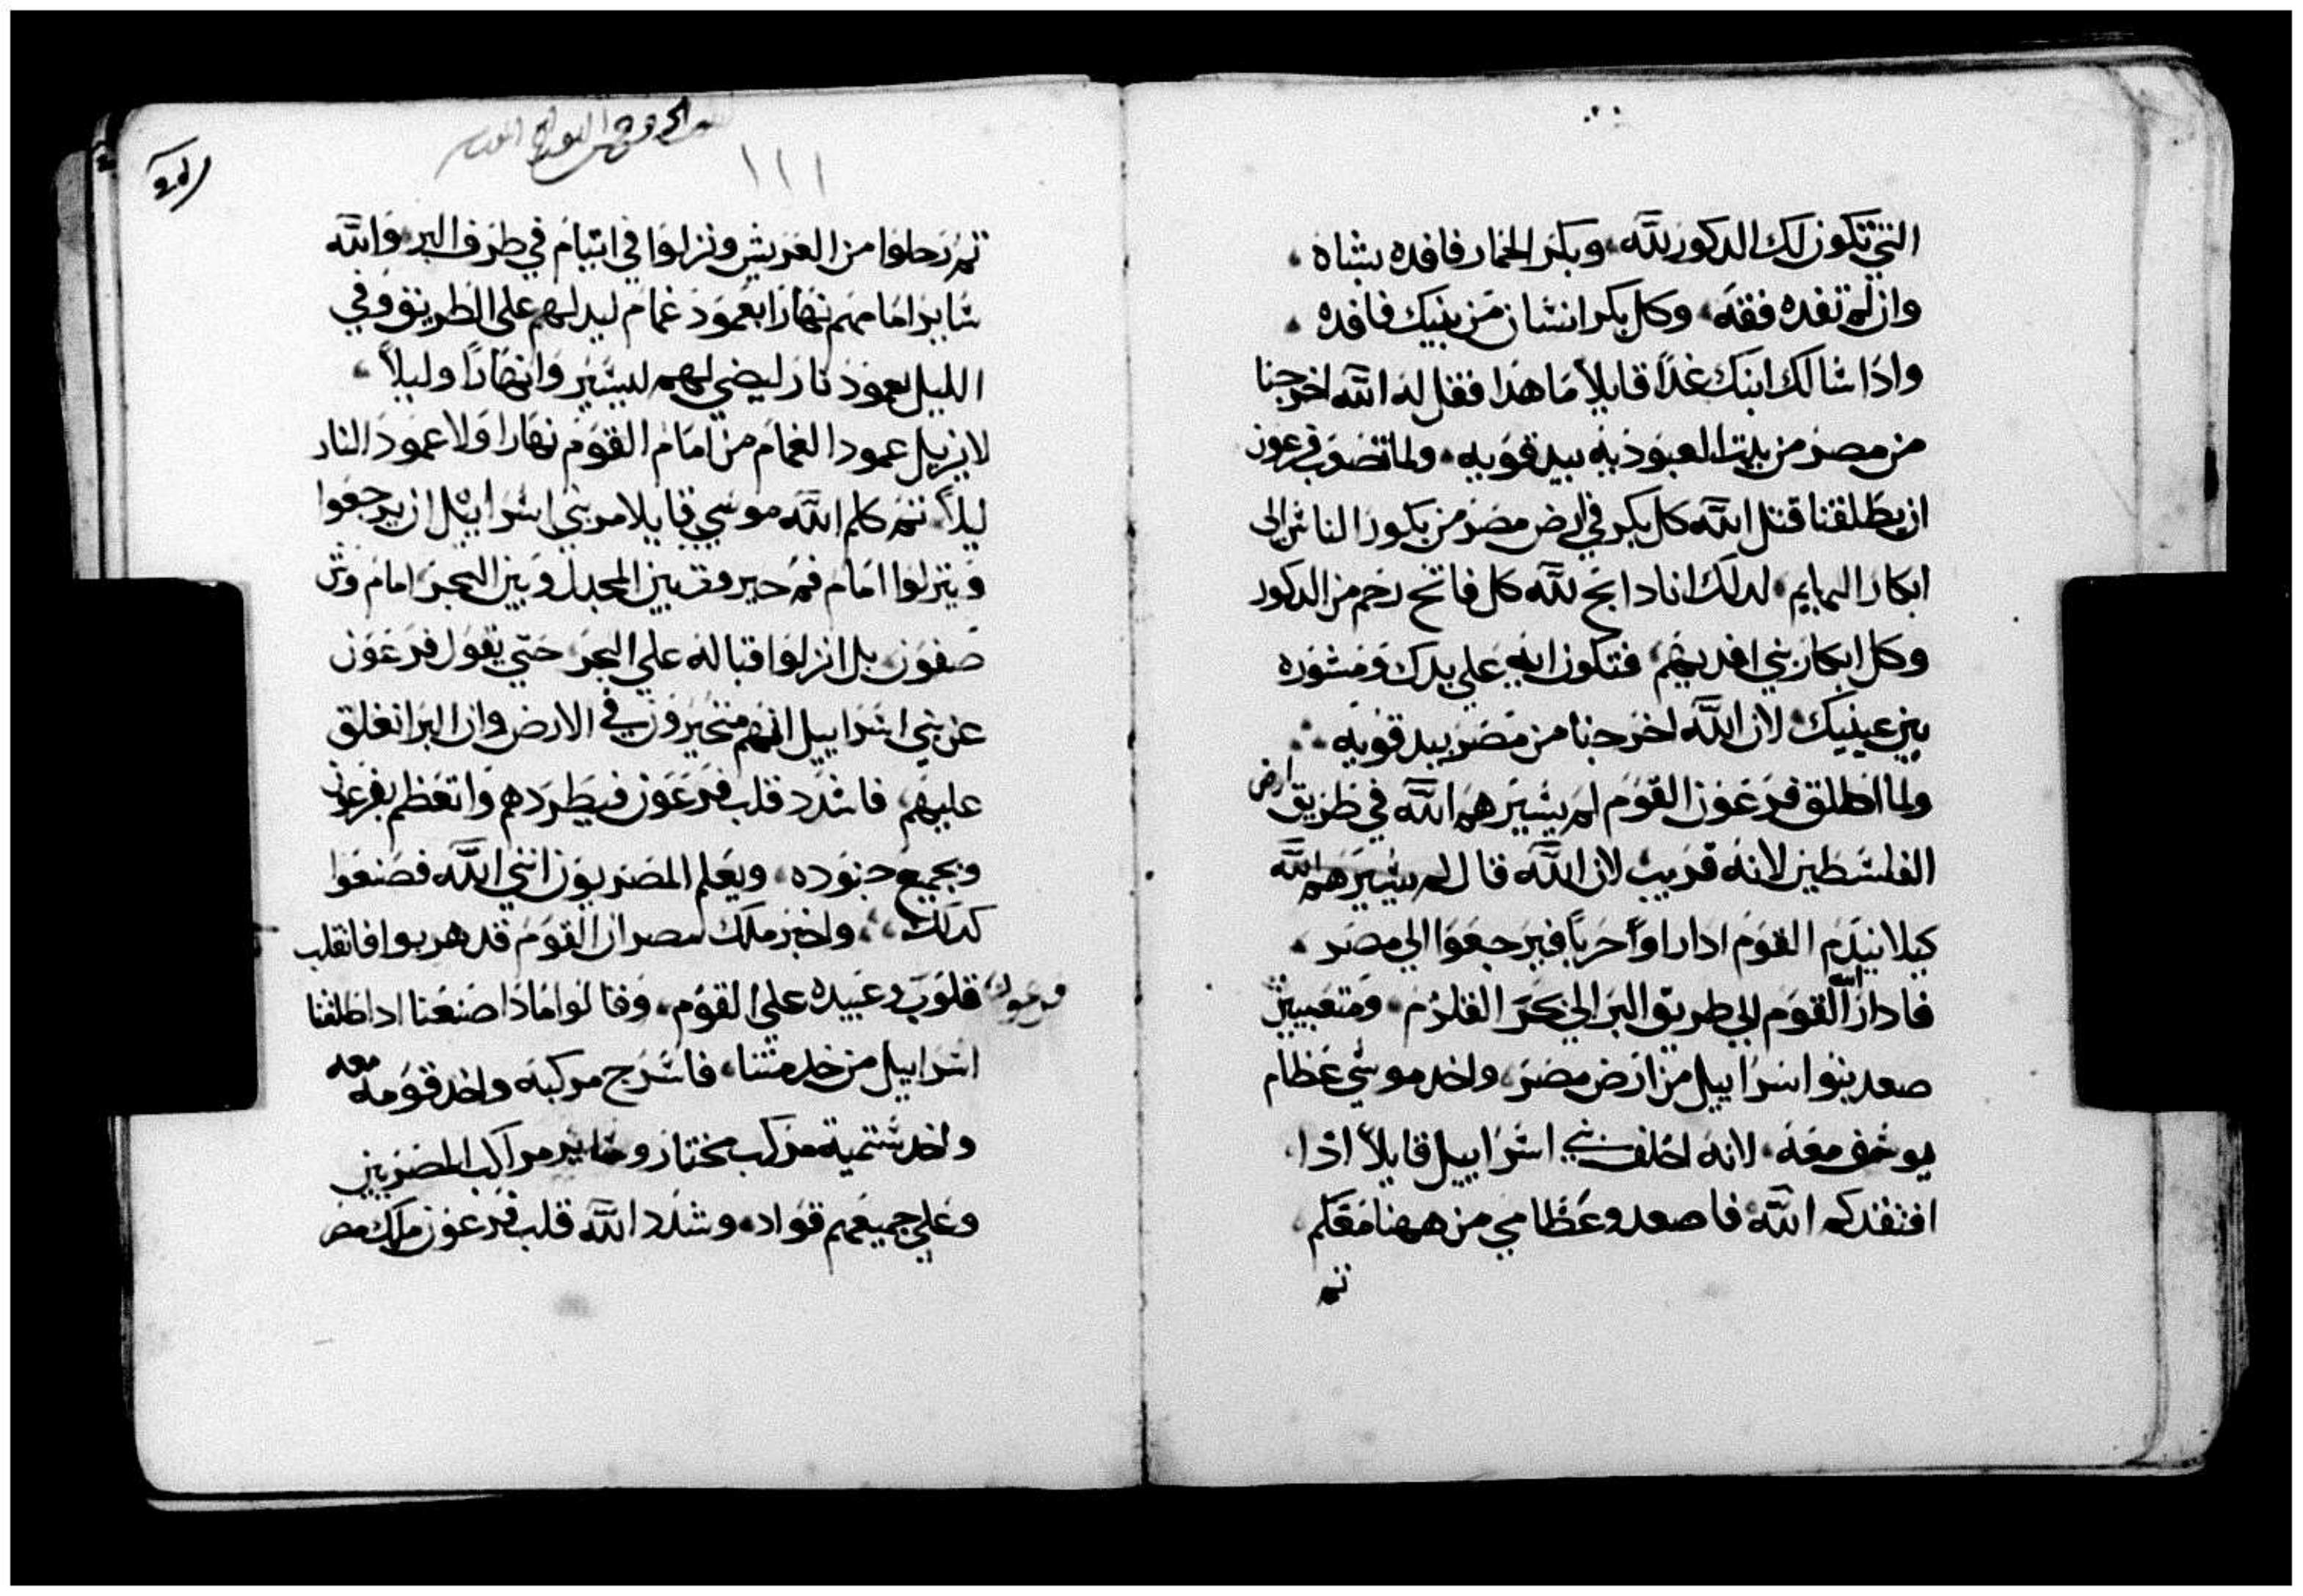 التي تكون لك الدكور لله وبكر الحمار فافده بشاه
وان لم تفده ففقه وكل بكر انسان من بنيك فافده
واذا سالك ابنك غدًا قايلاً ما هدا فقل له الله اخرجنا
من مصر من بيت العبوديه بيد قويه ولما تصعب فرعون
ان يطلقنا قتل الله كل بكر في ارض مصر من بكور الناس الى
ابكار البهايم لدلك انا دابح لله كل فاتح رحم من الدكور
وكل ابكار بني افديهم فتكون ايه علي يدك ومشوره
بين عينيك لان الله اخرجنا من مصر بيد قويه
ولما اطلق فرعون القوم لم يسيرهم الله في طريق ارض
الفلسطين لانه قريب لان الله قال لم يسيرهم الله
كيلا يندم القوم ادا راوا حربًا فيرجعوا الي مصر
فادار الله القوم الي طريق البر الي بحر القلزم ومتعبيين
صعد بنوا اسراييل من ارض مصر واخد موسي عظام
يوسف معه لانه احلف بني اسراييل قايلاً اذا
افتقدكم الله فاصعدو عظامي من ههنا معكم
تم
ثم رحلوا من العريش ونزلوا في اتيام في طرف البر والله
ساير امامهم نهارا بعمود غمام ليدلهم علي الطريق وفي
الليل بعمود نار ليضي لهم ليسيروا نهارًا وليلاً
لا يزيل عمود الغمام من امام القوم نهارا ولا عمود النار
ليلاً ثم كلم الله موسي قايلا مر بني اسراييل ان يرجعوا
وينزلوا امام فم حيروت بين المجدل وبين البحر امام وثن
صفون بل انزلوا قباله علي البحر حتي يقول فرعون
عن بني اسراييل انهم متحيرون في الارض وان البر انغلق
عليهم فاشدد قلب فرعون فيطردهم واتعظم بفرعون
وبجميع جنوده ويعلم المصريون انني الله فصنعوا
كدلك واخبر ملك مصر ان القوم قد هربوا فانقلب
قلوب فرعون وعبيده علي القوم وقالوا مادا صنعنا اد اطلقنا
اسراييل من خدمتنا فاسرج مركبه واخد قومه معه
واخد ستمية مركب مختار وساير مراكب المصريين
وعلي جميعهم قواد وشدد الله قلب فرعون ملك مصر